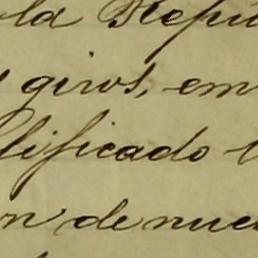 la Repú
giros, em
lificado
n de nue